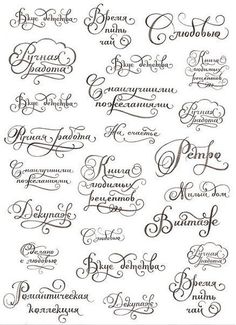 Вкус детства
Время
пить
чай
С любовью
Ручная
работа
Вкус детства
Книга
любимых
рецептов
Вкус детства
С наилучшими
пожеланиями
Ручная
работа
Ручная работа
На счастье
Ретро
С наилучшими
пожеланиями
Книга
любимых
рецептов
Милый дом
Декупаж
С любовью
Винтаж
Сделано
с любовью
Вкус детства
Ручная
работа
Романтическая
коллекция
Декупаж
Время
пить
чай